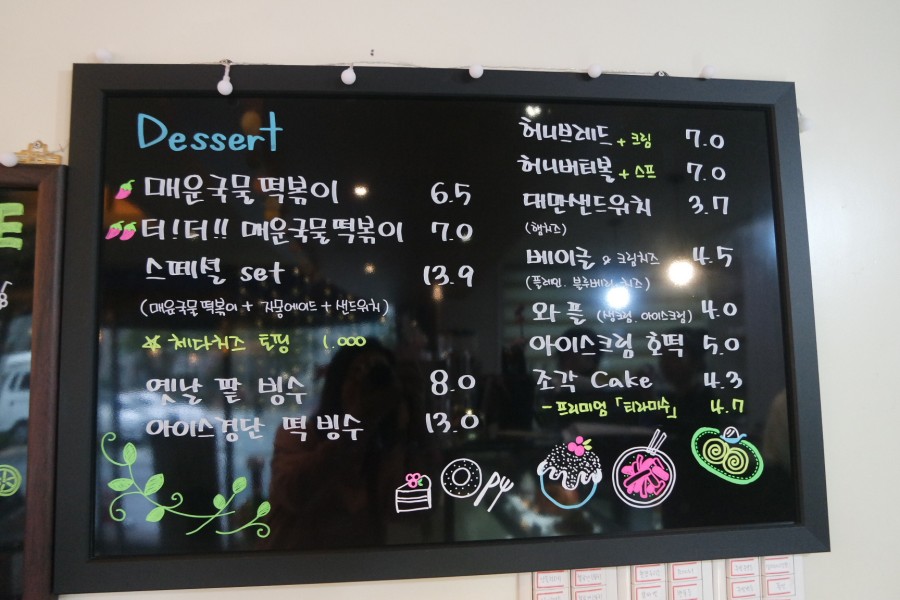 Dessert
매운국물떡볶이 6.5
더!더!! 매운국물떡볶이 7.0
스페셜 set 13.9
(매운국물떡볶이 + 자몽에이드 + 샌드위치)
☆ 체다치즈 토핑 1.000
옛날 팥 빙수 8.0
아이스경단 떡 빙수 13.0
허니브레드 + 크림 7.0
허니버터볼 + 스프 7.0
대만샌드위치 3.7
(햄치즈)
베이글 & 크림치즈 4.5
(플레인. 블루베리. 치즈)
와플 (생크림. 아이스크림) 4.0
아이스크림 호떡 5.0
조각 Cake 4.3
- 프리미엄 「티라미수」 4.7
E